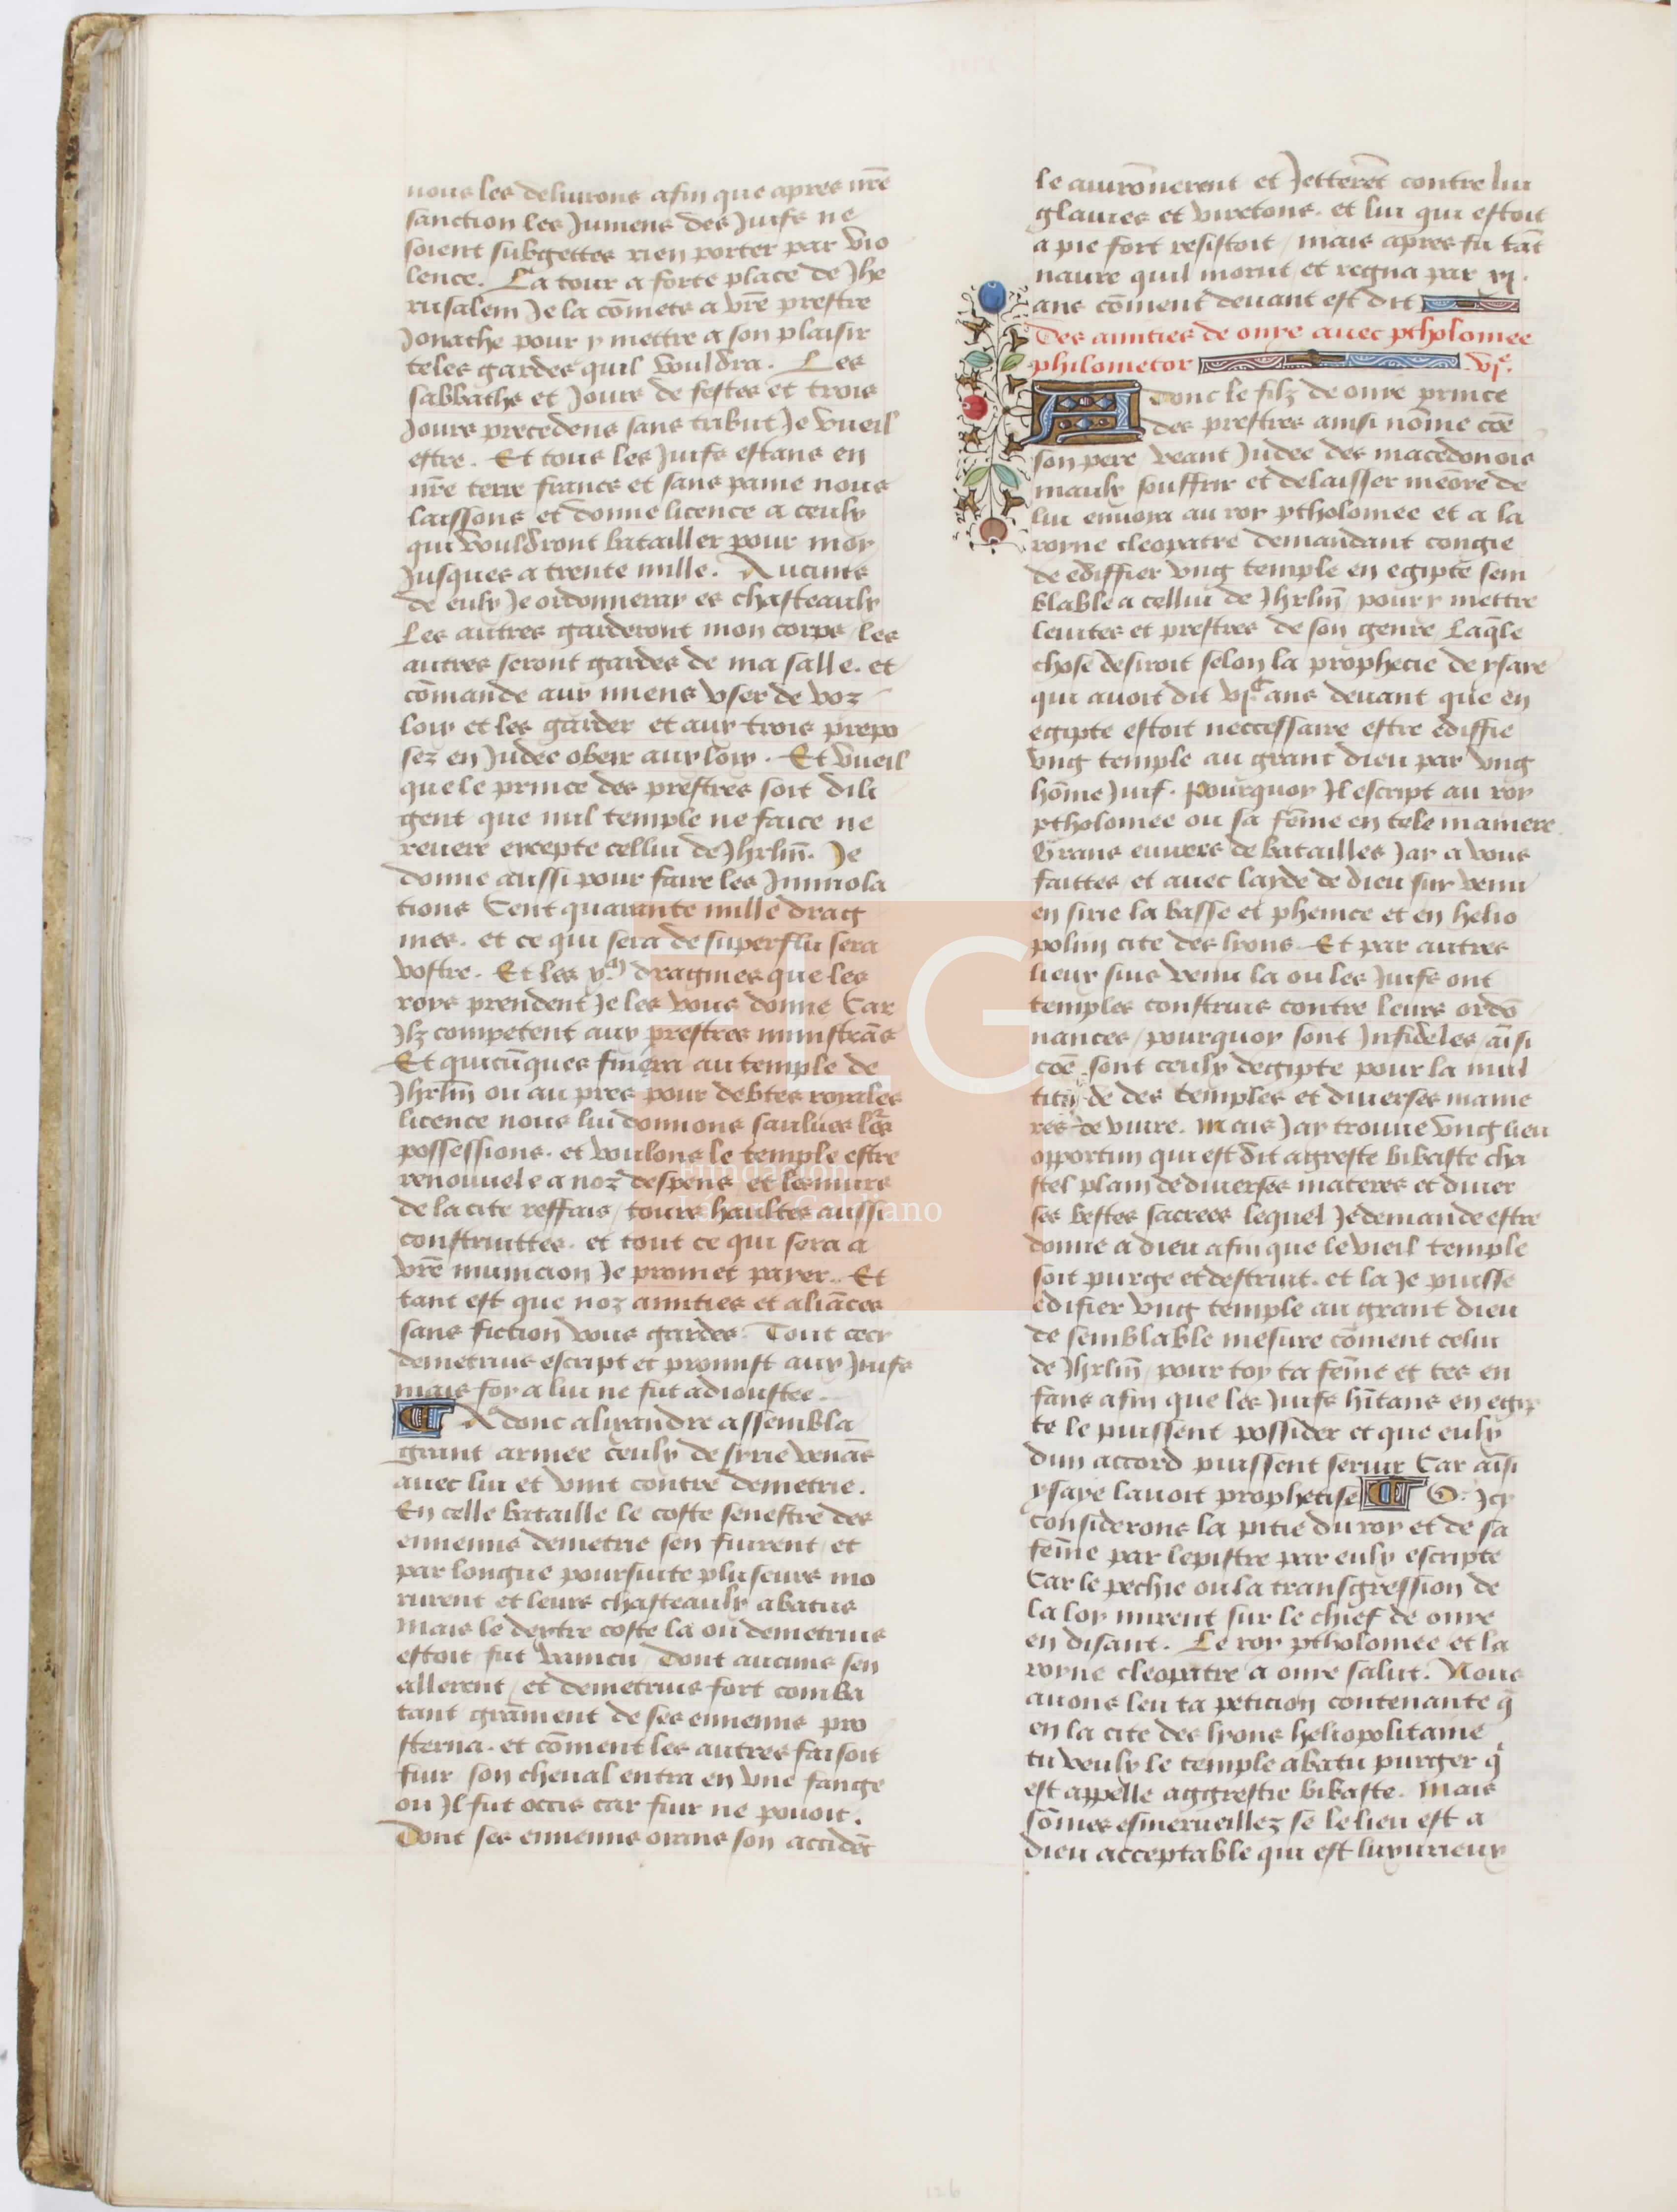 nous les deliurons afin que apres nr̃e
sanction les Jumens des Juifs ne
soient subgettes rien porter par vio
lence. La tour a forte place de Jhe
rusalem Je la cõmets a vr̃e prestre
Jonathe pour y mettre a son plaisir
teles gardes quil vouldra. Les
sabbaths et Jours de festes et trois
Jours precedens sans tribut Je vueil
estre. Et tous les Juifs estans en
nr̃e terre francs et sans paine nous
laissons et donne licence a ceulx
qui vouldront batailler pour moy
Jusques a trente mille. Aucuns
de eulx Je ordonneray es chasteaulx
Les autres garderont mon corps / les
autres seront gardes de ma salle. et
cõmande aux miens vser de voz
loix et les garder et aux trois prepo
sez en Judee obeir aux loix. Et vueil
que le prince des prestres soit dili
gent que nul temple ne face ne
reuere excepte cellui de Jhrlm̃. Je
donne aussi pour faire les Jmmola
tions Cent quarante mille drag
mes. et ce qui sera de superflu sera
vostre. Et les xm dragmes que les
roys prendent Je les vous donne Car
Jlz competent aux prestres ministrãs
Et quicũques finera au temple de
Jhrlm̃ ou au pres pour debtes royales
licence nous lui donnons saulues lors
possessions. et voulons le temple estre
renouuele a noz despens et les murs
de la cite reffais / tours haultes aussi
construittes. et tout ce qui sera a
vr̃e municion Je promet payer. Et
tant est que noz amities et aliãces
sans fiction vous gardes. Tout cecy
demetrius escript et promist aux Juifs
mais foy a lui ne fut adioustee.
Adonc alixandre assembla
grant armee ceulx de syrie venãs
auec lui et vint contre demetrie.
En celle bataille le coste senestre des
ennemis demetrie sen fuirent / et
par longue poursuite pluseurs mo
rurent et leurs chasteaulx abatus
Mais le dextre coste la ou demetrius
estoit fut vaincu / Dont aucuns sen
allerent / et demetrius fort comba
tant grãment de ses ennemis pro
sterna. et cõment les autres faisoit
fuir son cheual entra en vne fange
ou Jl fut occis car fuir ne pouoit.
Dont ses ennemis oians son accidẽt
le auirõnerent et Jetterẽt contre lui
glaiues et viretons. et lui qui estoit
a pie fort resistoit / mais apres fu tãt
naure quil morut et regna par xj.
ans cõment deuant est dit
Des amities de onye auec ptholomee
philometor vje.
Adonc le filz de onye prince
des prestres ainsi nõme cõe
son pere / veant Judee des macedonois
maulx souffrir et delaisser mẽore de
lui enuoia au roy ptholomee et a la
royne cleopatre demandant congie
de ediffier vng temple en egipte sem
blable a cellui de Jhrlm̃ pour y mettre
leuites et prestres de son genre Laq̃le
chose desiroit selon la prophecie de ysaie
qui auoit dit vjc ans deuant que en
egipte estoit neccessaire estre ediffie
vng temple au grant dieu par vng
hõme Juif. Pourquoy Jl escript au roy
ptholomee ou sa fẽme en tele maniere
Grans euures de batailles Jay a vous
faittes / et auec layde de dieu suy venu
en sirie la basse et phenice et en helio
polim cite des lyons. Et par autres
lieux suis venu la ou les Juifs ont
temples construis contre leurs ordõ
nances / pourquoy sont Jnfideles / aĩsi
cõe sont ceulx degipte pour la mul
titude des temples et diuerses manie
res de viure. Mais Jay trouue vng lieu
opportun qui est dit agreste bibaste cha
stel plain de diuerses materes et diuer
ses bestes sacrees lequel Je demande estre
donne a dieu afin que le vieil temple
soit purge et destruit. et la Je puisse
edifier vng temple au grant dieu
de semblable mesure cõment celui
de Jhrlm̃ / pour toy ta fẽme et tes en
fans afin que les Juifs hĩtans en egip
te le puissent possider et que eulx
dun accord puissent seruir Car aĩsi
ysaye lauoit prophetise O. Jcy
considerons la pitie du roy et de sa
fẽme par lepistre par eulx escripte
Car le pechie ou la transgression de
la loy mirent sur le chief de onye
en disant. Le roy ptholomee et la
royne cleopatre a onye salut. Nous
auons leu ta peticion contenante q̃
en la cite des lyons heliopolitaine
tu veulx le temple abatu purger q̃
est appelle aggrestie bibaste. Mais
sõmes esmerueillez se le lieu est a
dieu acceptable qui est luxurieux
FLG
Fundación
Lázaro Galdiano
126